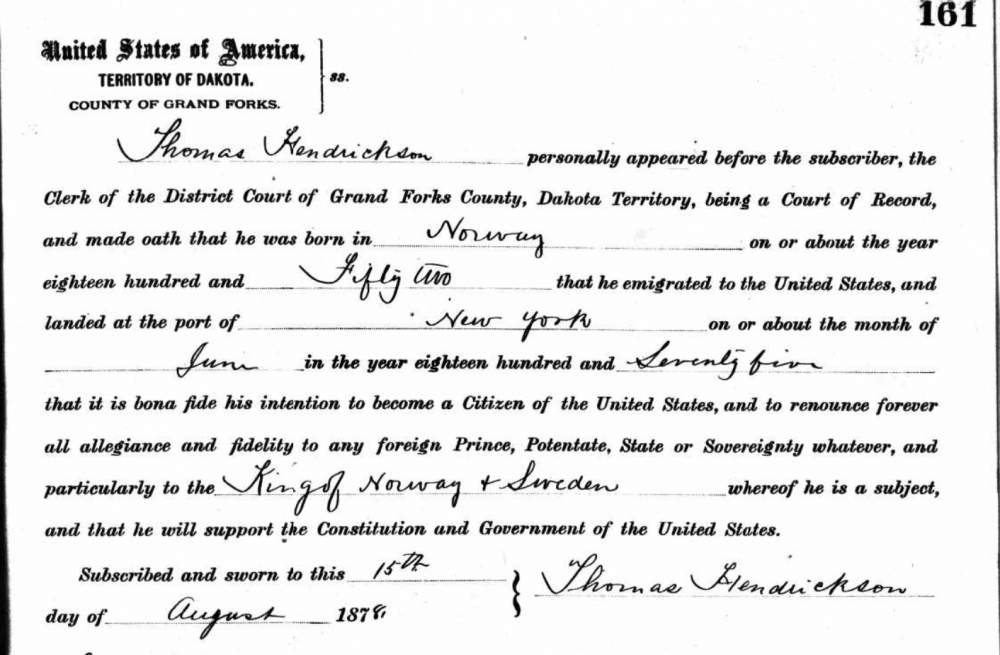 161
United States of America,
TERRITORY OF DAKOTA.
COUNTY OF GRAND FORKS.
ss.
Thomas Hendrickson personally appeared before the subscriber, the
Clerk of the District Court of Grand Forks County, Dakota Territory, being a Court of Record,
and made oath that he was born in Norway on or about the year
eighteen hundred and Fifty two that he emigrated to the United States, and
landed at the port of New York on or about the month of
June in the year eighteen hundred and Seventy five
that it is bona fide his intention to become a Citizen of the United States, and to renounce forever
all allegiance and fidelity to any foreign Prince, Potentate, State or Sovereignty whatever, and
particularly to the King of Norway & Sweden whereof he is a subject,
and that he will support the Constitution and Government of the United States.
Subscribed and sworn to this 15th
day of August 1878
Thomas Hendrickson